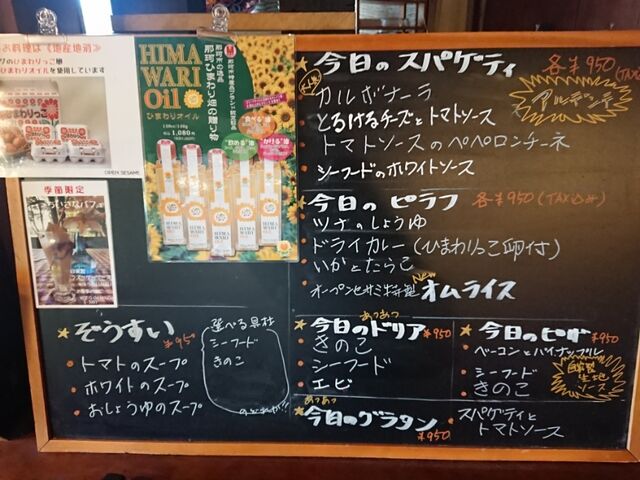 お料理は《地産地消》
ひまわりっこ卵
ひまわりオイルを使用しています
ひまわりっこ
OPEN SESAME
季節限定
HIMA
WARI
Oil
ひまわりオイル
1,080円
那珂市の逸品
那珂ひまわり畑の贈り物
HIMA
WARI
Oil
今日のスパゲティ 各¥950(TAX
人気
アルデンテ
カルボナーラ
とろけるチーズとトマトソース
トマトソースのペペロンチーネ
シーフードのホワイトソース
今日のピラフ 各¥950(TAX込み)
ツナのしょうゆ
ドライカレー(ひまわりっこ卵付)
いかとたらこ
NEW
オープンセサミ特製 オムライス
ぞうすい
¥950
トマトのスープ
ホワイトのスープ
おしょうゆのスープ
選べる具材
シーフード
きのこ
のどれか!!
あつあつ
今日のドリア ¥950
きのこ
シーフード
エビ
今日のピザ ¥950
ベーコンとパイナップル
シーフード
きのこ
自家製
生地
ソース
あつあつ
今日のグラタン ¥950
スパゲティと
トマトソース